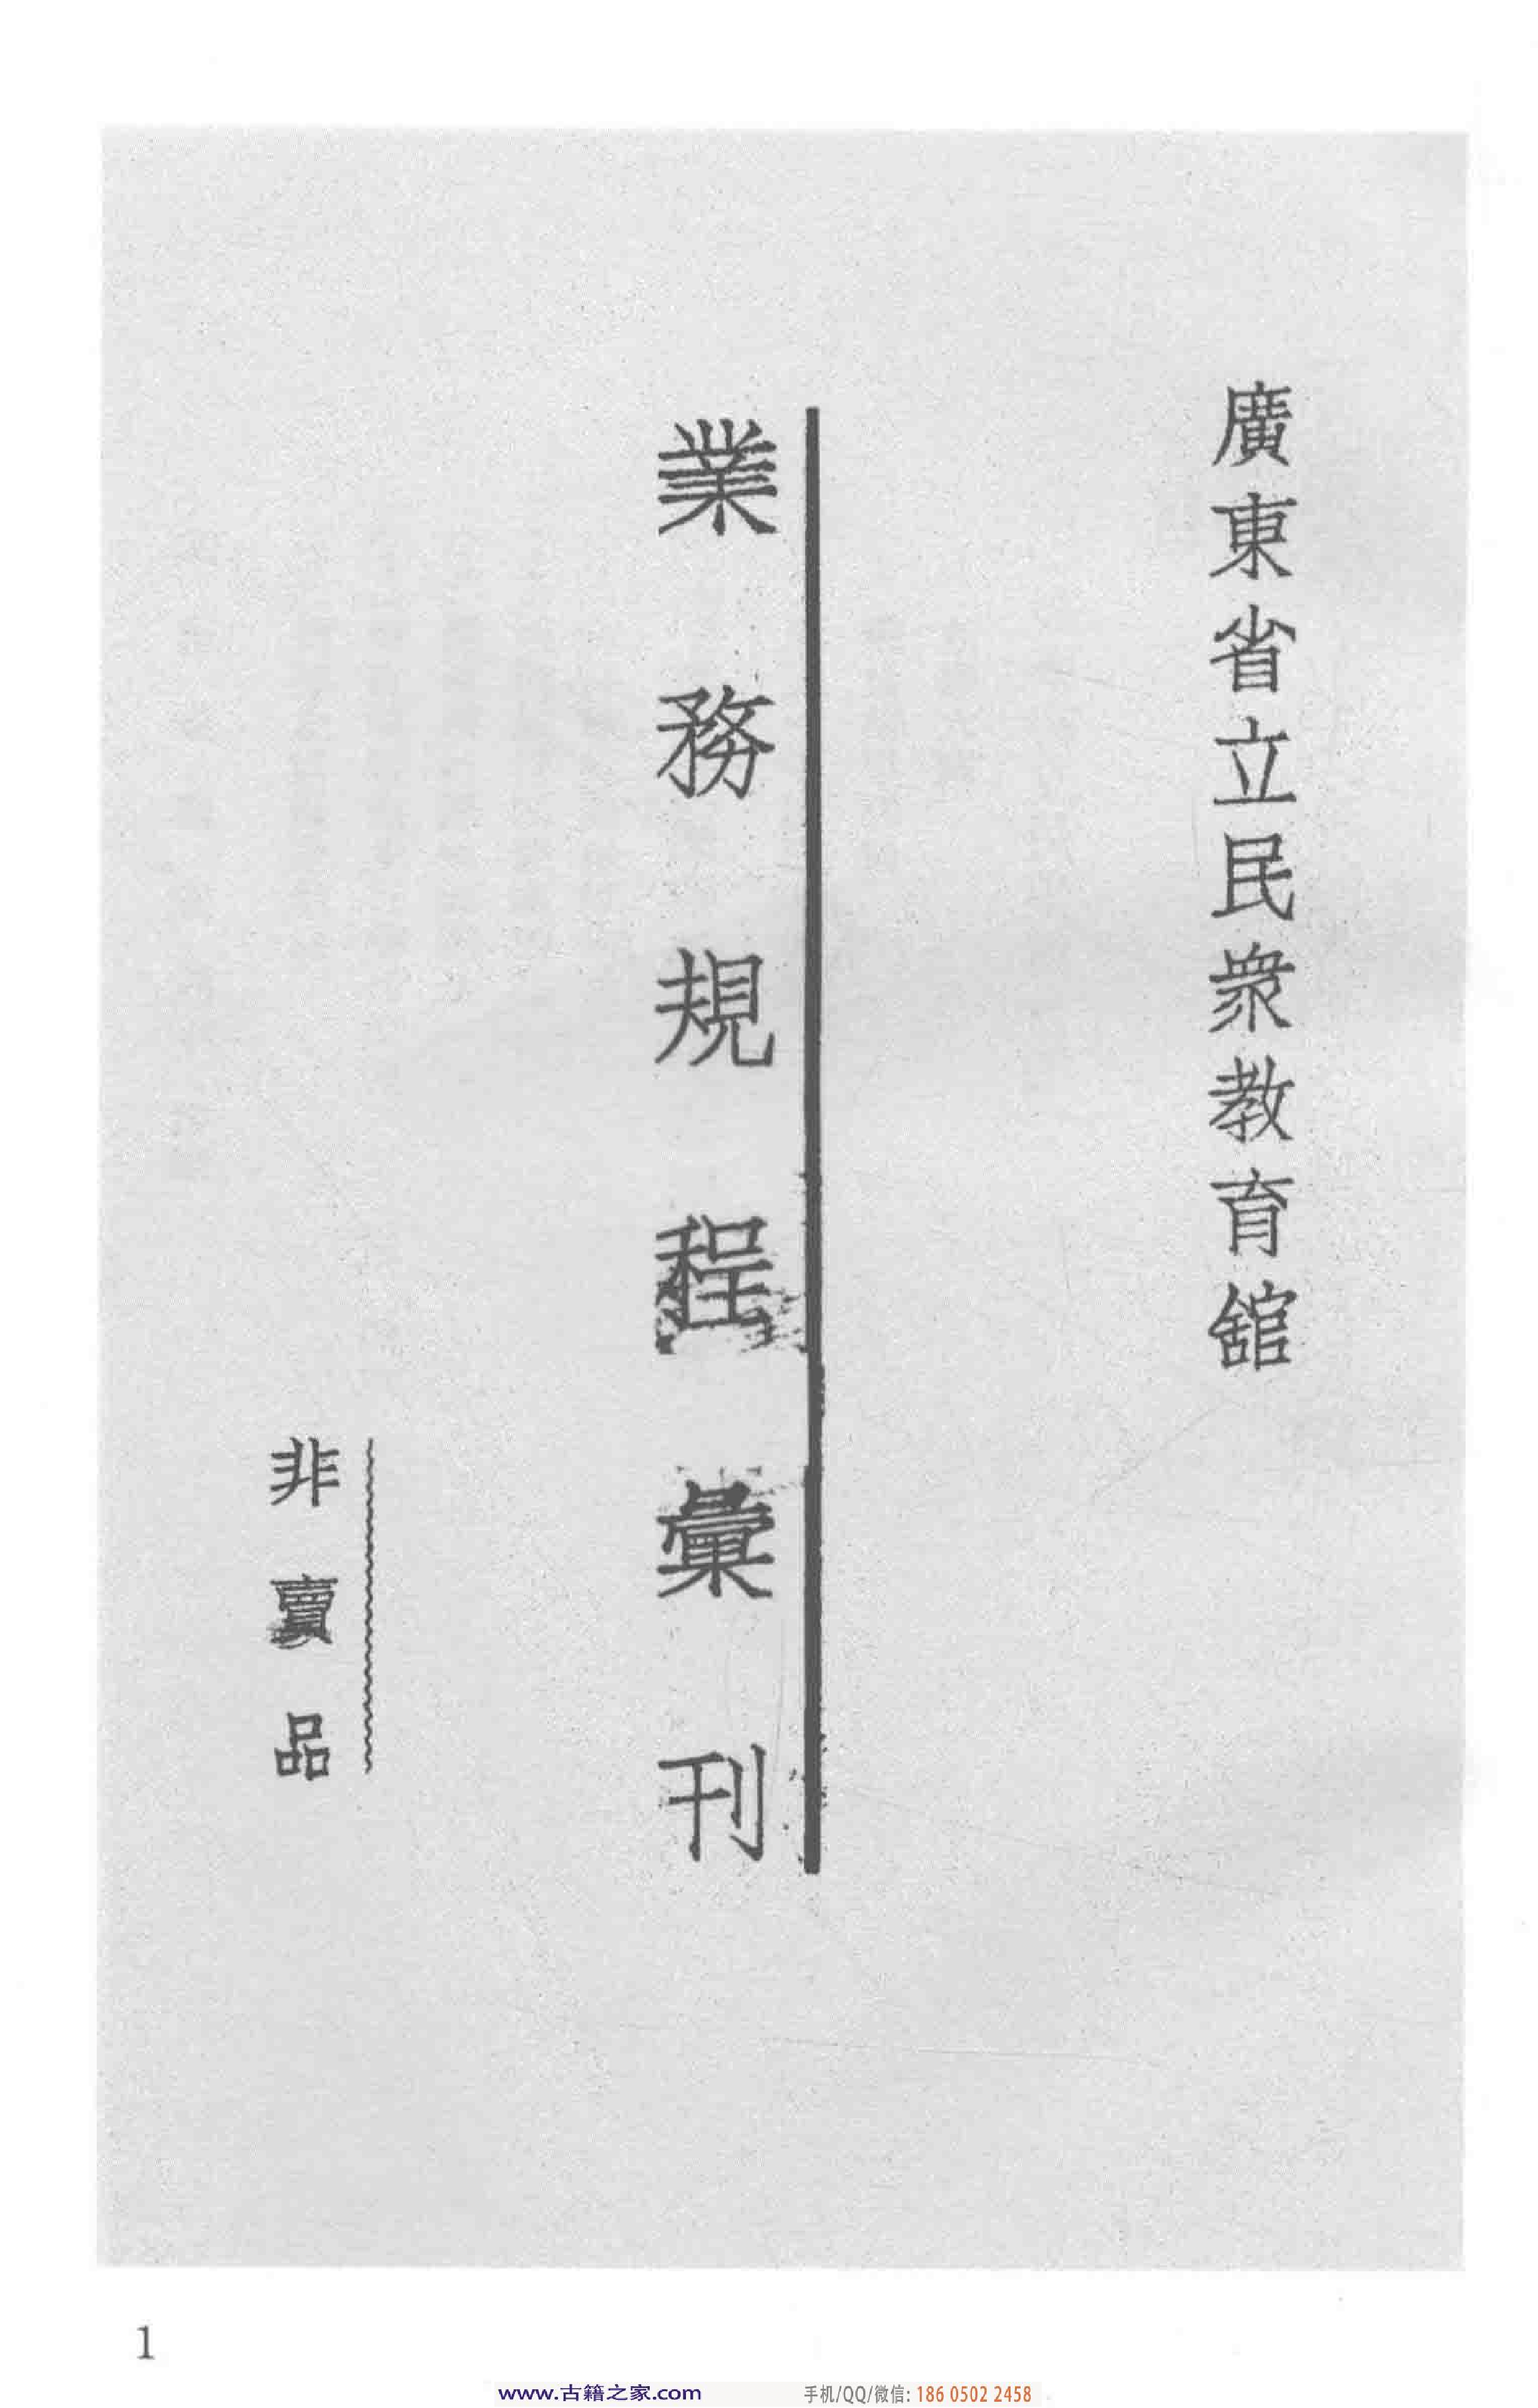 廣東省立民衆教育舘
業務規程彙刊
非賣品
1
www.古籍之家.com 手机/QQ/微信: 186 0502 2458